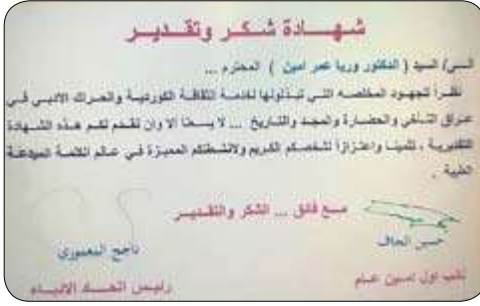 شهادة شكر وتقدير
الـى/ السيد ( الدكتور وريا عمر امين ) المحترم ...
نظراً لجهود المخلصه التي تبذلونها لخدمة الثقافة الكوردية والحراك الادبي في
عراق التاخي والحضارة والمجد والتاريخ ... لا يسعنا الا وان نقدم لكم هذه الشهادة
التقديرية ، تثمينا واعتزازاً لشخصكم الكريم ولانشطتكم المميزة في عالم الكلمة المبدعة
الطيبة .
مـع فائق ... الشكر والتقديـر
حسين الجاف
ناجح المعموري
نائب اول امين عـام
رئيس اتحـاد الادبـاء